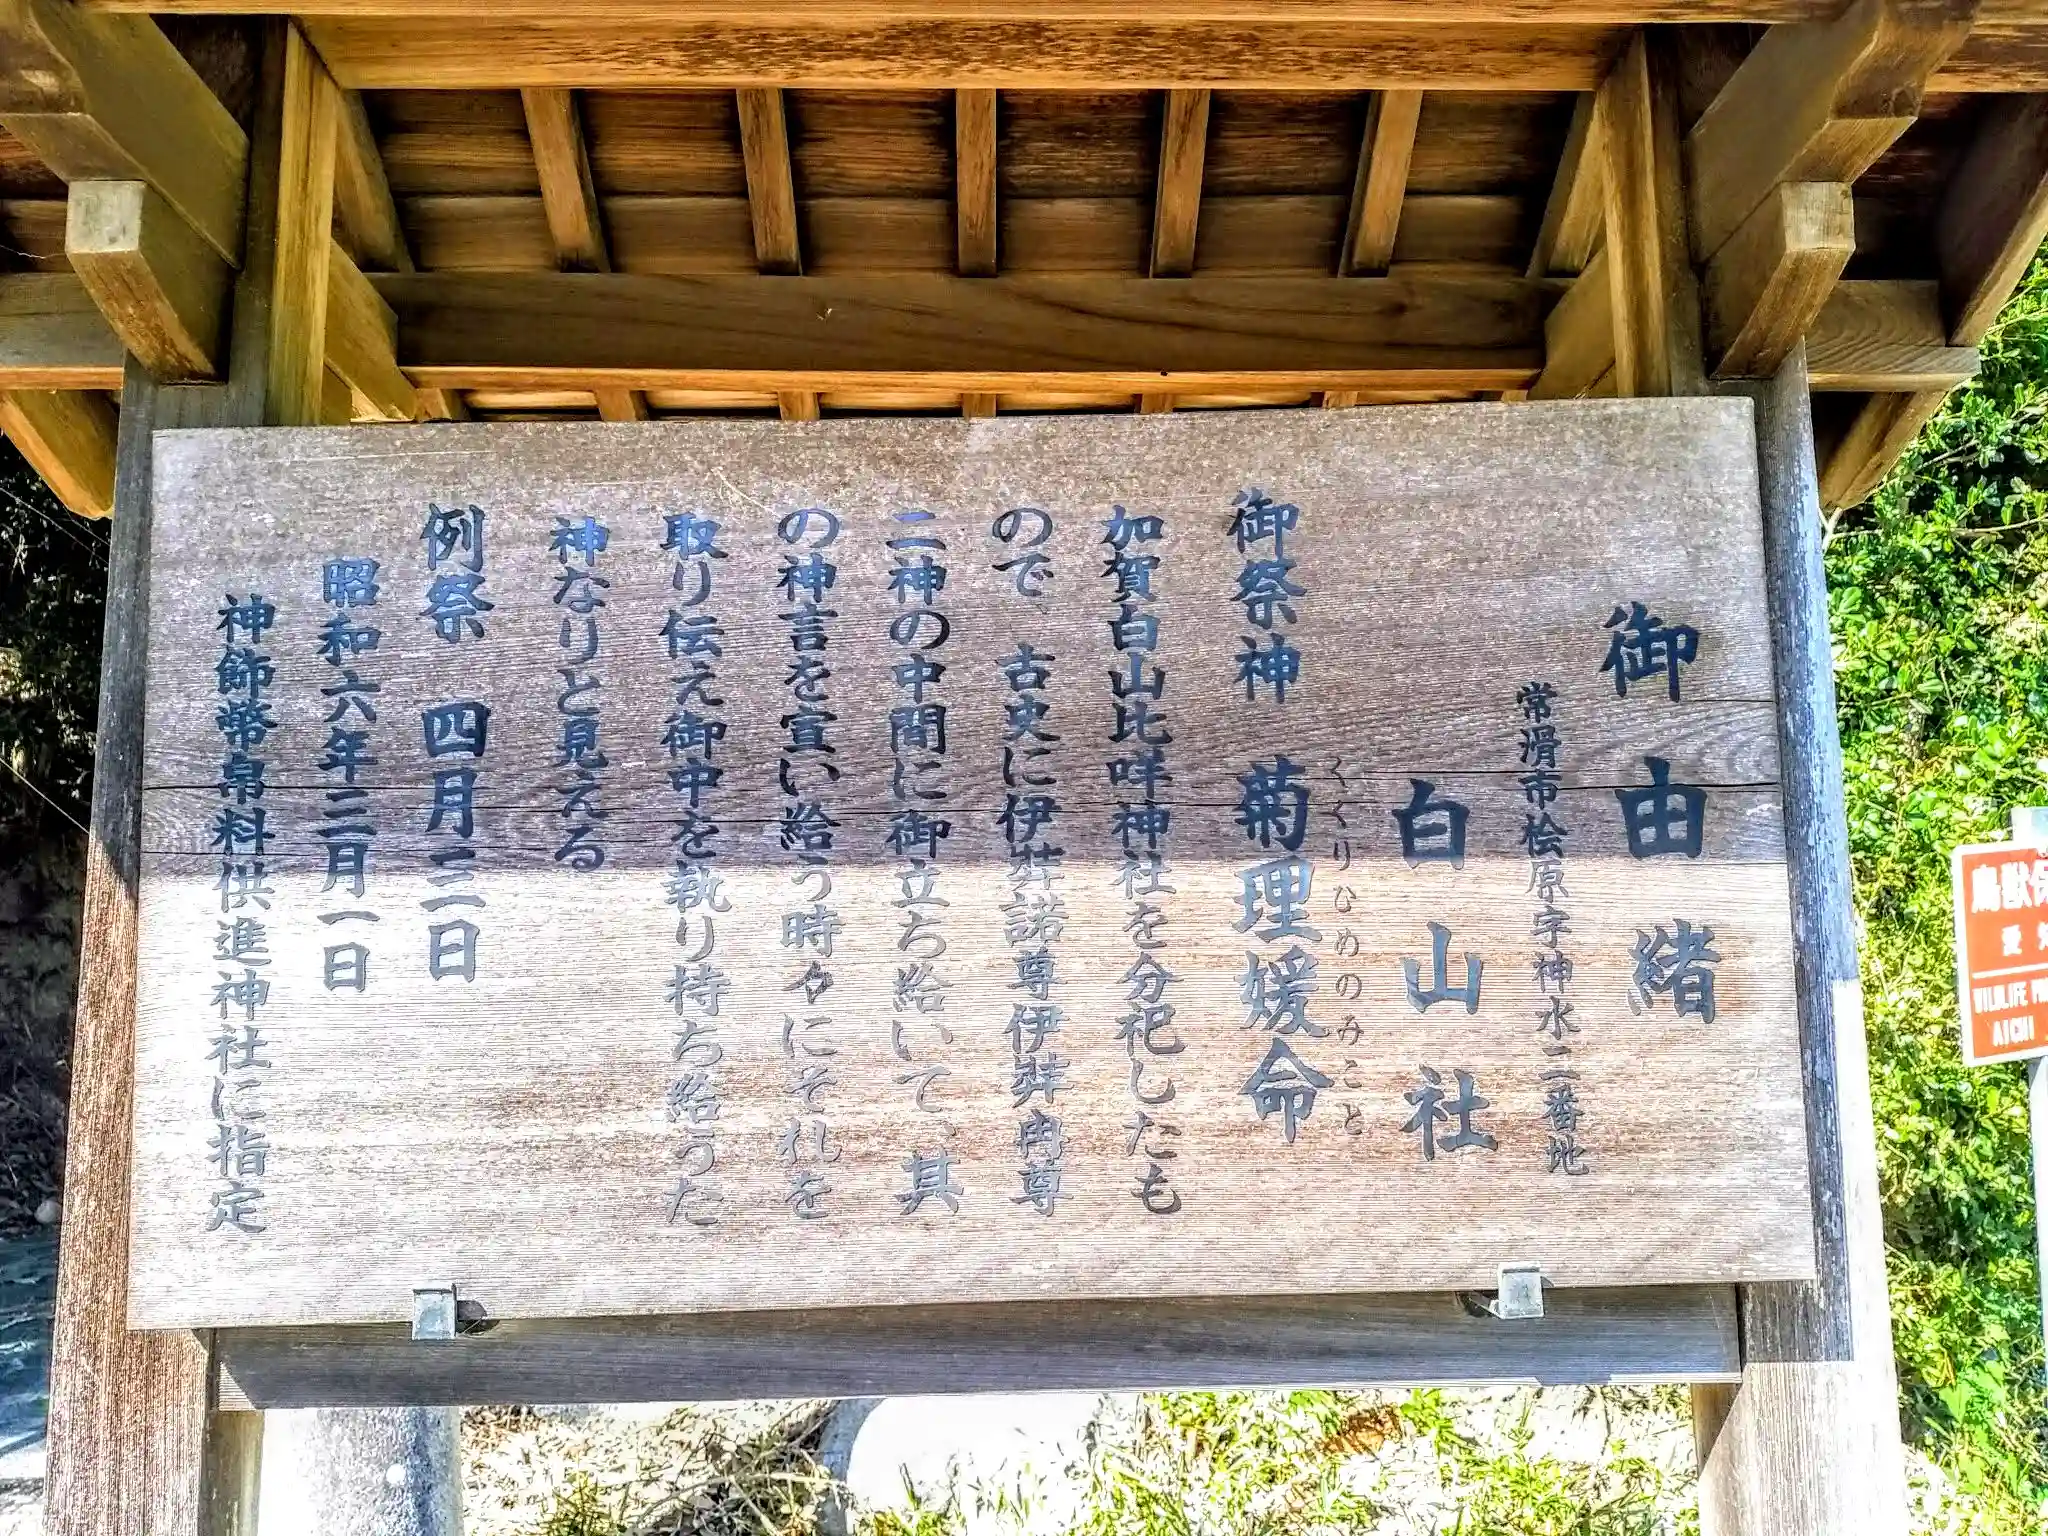 御由緒
常滑市桧原字神水二番地
白山社
くくりひめのみこと
御祭神 菊理媛命
加賀白山比咩神社を分祀したも
ので、古史に伊弉諾尊伊弉冉尊
二神の中間に御立ち給いて、其
の神言を宣い給う時々にそれを
取り伝え御中を執り持ち給うた
神なりと見える
例祭 四月三日
昭和六年三月一日
神飾幣帛料供進神社に指定
鳥獣
愛
WILDLIFE
AICHI